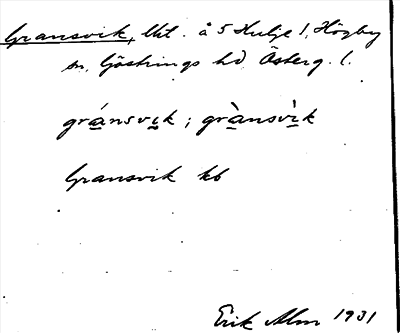 Gransvik, Utl. å 5 Hulje 1, Högby
sn. Göstrings hd Österg. l.
gránsvik ; grànsvìk
Gransvik kb
Erik Alm 1931